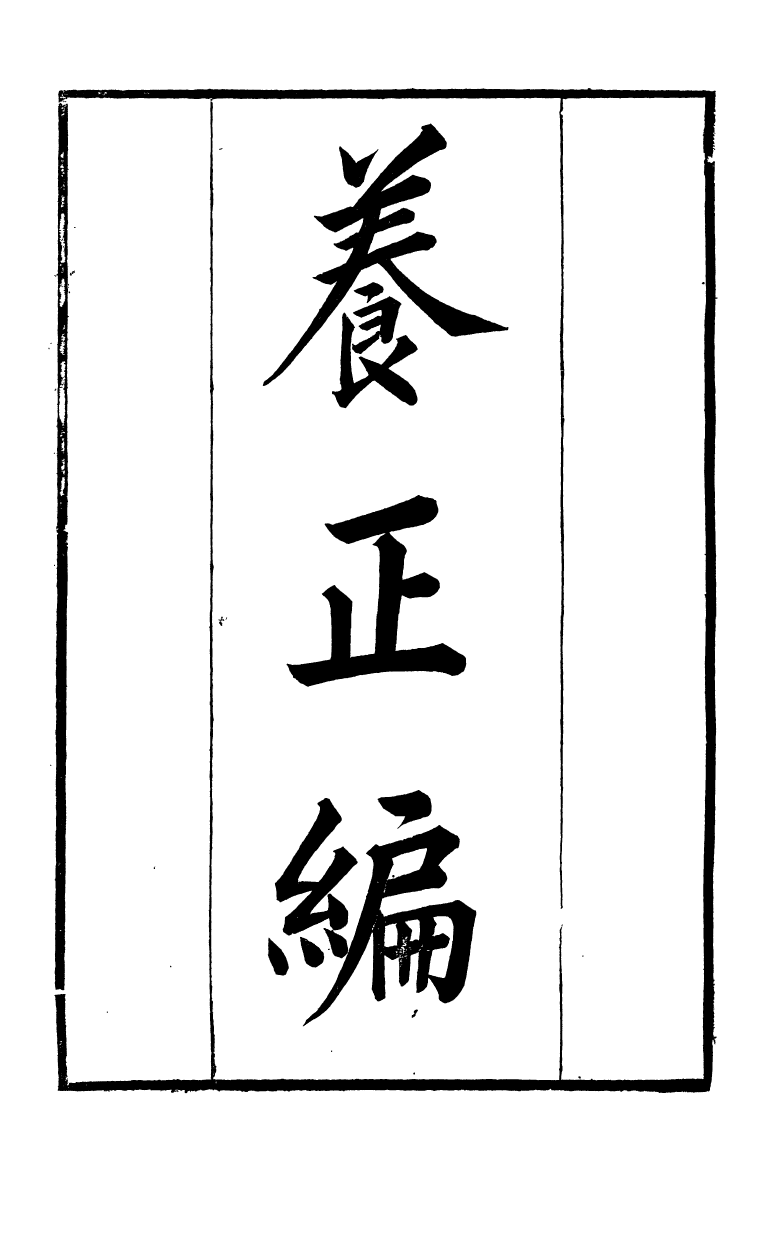 養正編